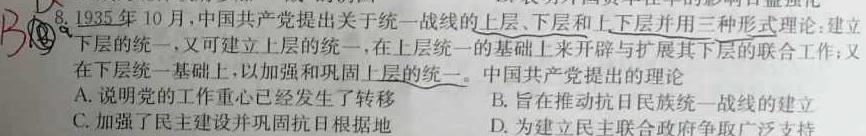 B
8. 1935年10月,中国共产党提出关于统一战线的上层、下层和上下层并用三种形式理论:建立
下层的统一,又可建立上层的统一,在上层统一的基础上来开辟与扩展其下层的联合工作;又
在下层统一基础上,以加强和巩固上层的统一。中国共产党提出的理论
A. 说明党的工作重心已经发生了转移 B. 旨在推动抗日民族统一战线的建立
C. 加强了民主建设并巩固抗日根据地 D. 为建立民主联合政府争取广泛支持